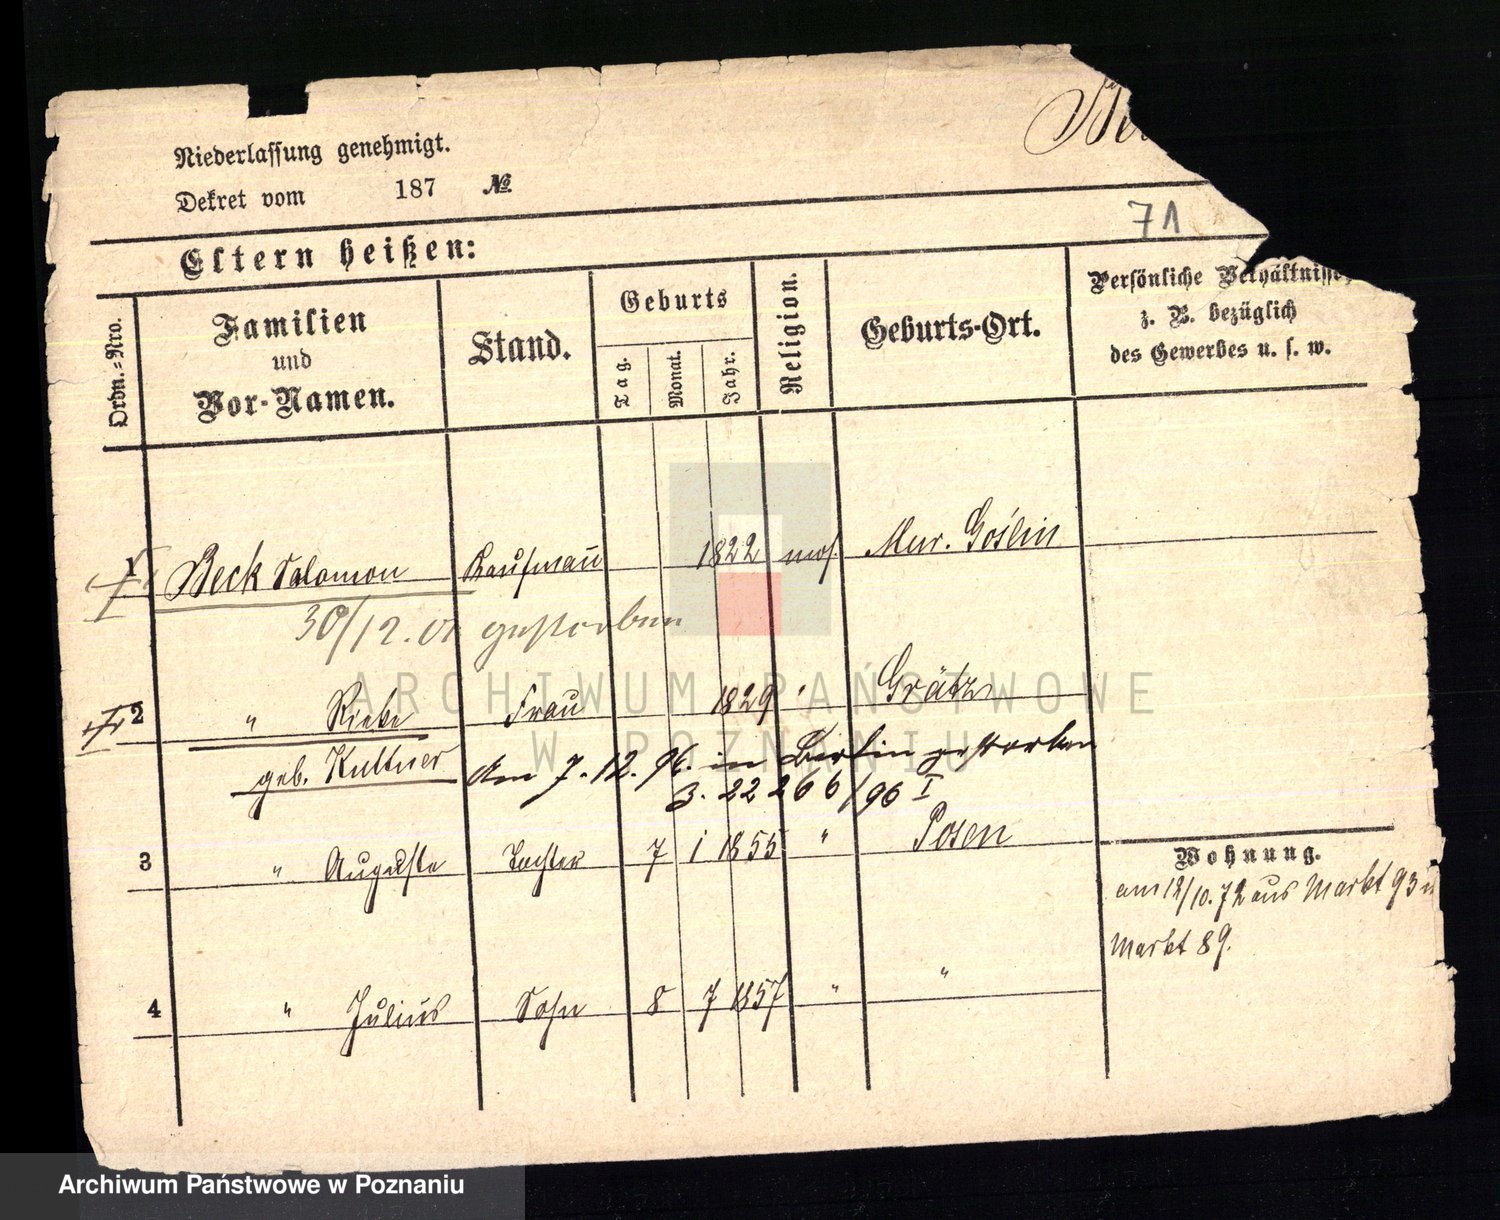 Niederlassung genehmigt.
Dekret vom 187 №.
71
Eltern heißen:
Ordn.-Nro.
Familien
und
Vor-Namen.
Stand.
Geburts
Tag.
Monat.
Jahr.
Religion.
Geburts-Ort.
Persönliche Verhältnisse,
z. B. bezüglich
des Gewerbes u. s. w.
1 Beck Salomon Kaufmann 1822 mos. Mur. Goślin
30/12.01 gestorben
2 " Rieke Frau 1829 " Grätz
geb. Kuttner am 7.12.96. in Berlin gestorben
3. 22266/96 I
3 " Auguste Tochter 7 1 1855 " Posen
Wohnung.
am 12/10.72 aus Markt 93 n
Markt 89.
4 " Julius Sohn 8 7 1857 " "
ARCHIWUM PAŃSTWOWE
W POZNANIU
Archiwum Państwowe w Poznaniu